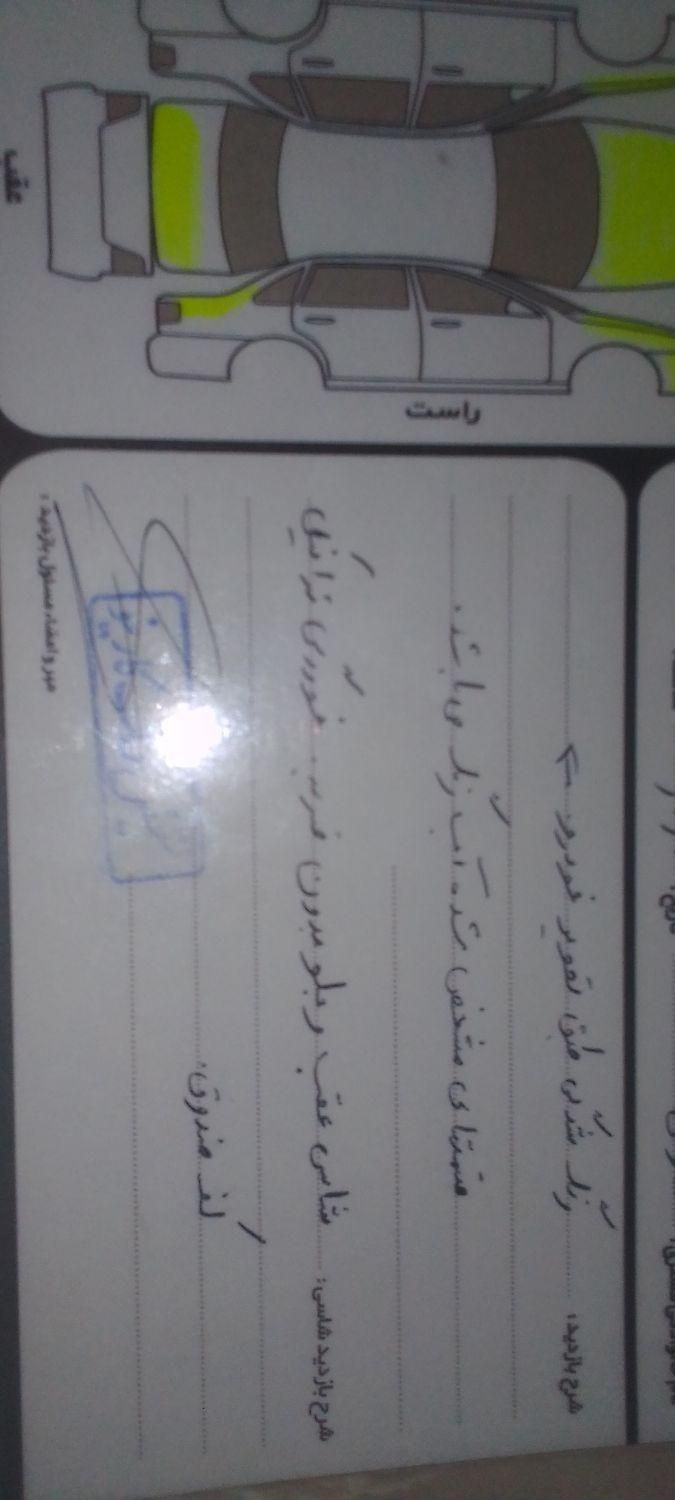 عقب
راست
شرح بازدید: رنگ شدگی طبق تصویر خودرو
قسمتهای مشخص شده آب رنگ می باشد.
شرح بازدید شاسی: شاسی عقب و جلو بدون ضرب خوردگی
کف صندوق
مهر و امضاء مسئول بازدید: